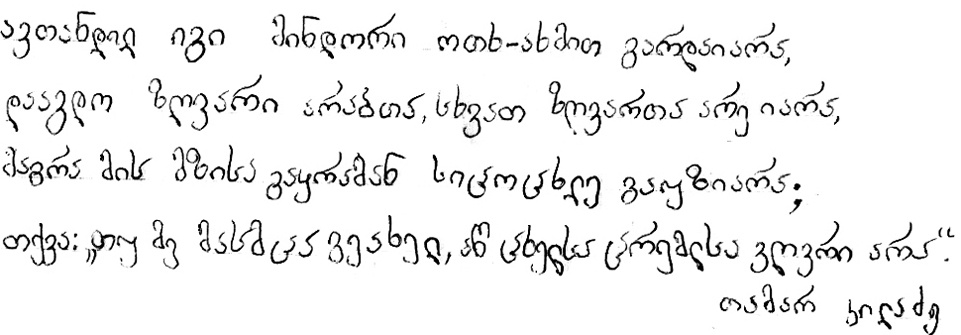 ავთანდილ იგი მინდორი ოთხ-ახმით გარდაიარა,
დააგდო ზღვარი არაბთა, სხვათ ზღვართა არე იარა,
მაგრა მის მზისა გაყრამან სიცოცხლე გაუზიარა;
თქვა: „თუ მე მასმცა ვეახელ, აწ ცხელსა ცრემლსა ვღვრი არა“.
თამარ